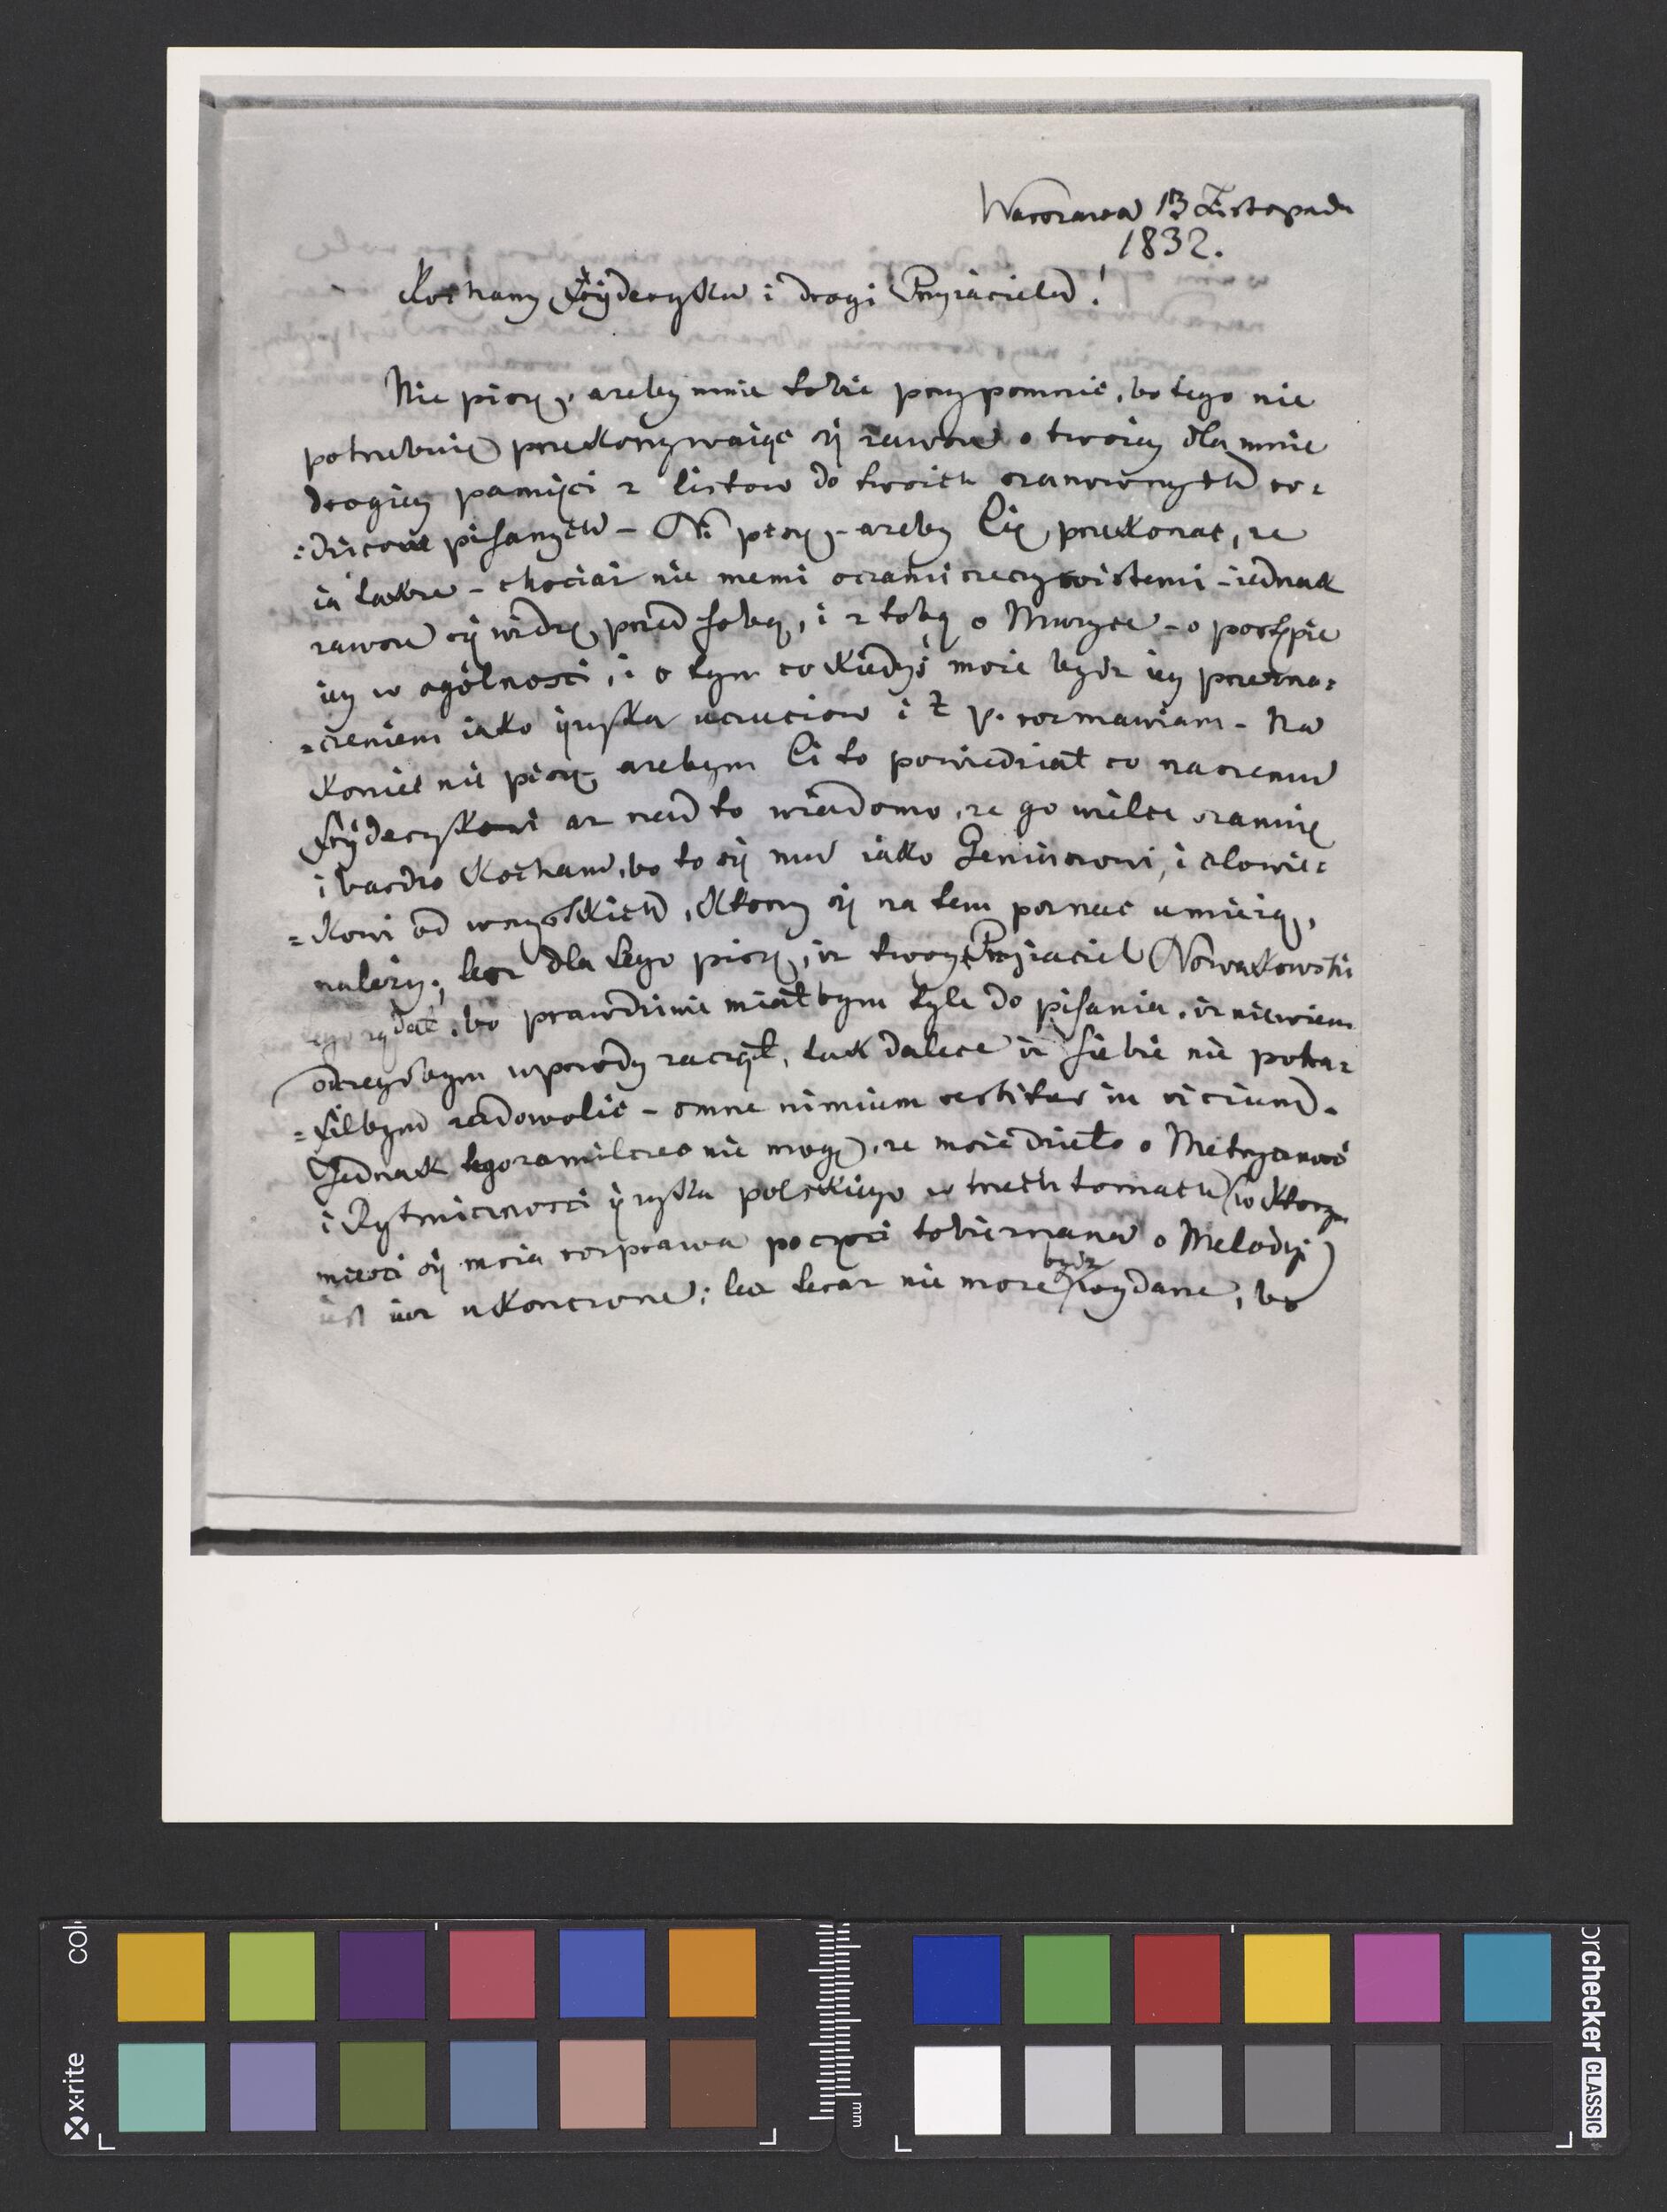 Warszawa 13 Listopada
1832.
Kochany Fryderyku i drogi Przyjacielu!
Nie piszę, ażeby mnie tobie przypomnić, bo tego nie
potrzebuię przekonywaiąc się zawsze o twoiey dla mnie
drogiey pamięci z listow do twoich szanownych ro=
=dzicow pisanych – Ni piszę – ażeby Cię przekonac, że
ia także – chociaż nie memi oczami rzeczywistemi – iednak
zawsze się widzę przed sobą, i z tobą o Muzyce – o postępie
iey w ogólnosci, i o tym co kiedyś może bydz iey przezna=
=czeniem iako ięzyka uczuciow i t p. rozmawiam – Na
koniec nie piszę, ażebym Ci to powiedział co naszemu
Fryderykowi aż nad to wiadomo, że go wielce szanuię
i bardzo kocham, bo to się mu iako Geniuszowi, i człowie=
=kowi od wszystkich, ktorzy się na tem poznac umieią,
należy; lecz dla tego piszę, iż twoy Przyjaciel Nowakowski
tego żądał, bo prawdziwie miałbym tyle do pisania, iż niewiem
odczegobym wprzody zaczął, tak dalece iż siebie nie potra=
=filbym zadowolic – omne nimium vertitur in vicium.
Jednak tego zamilczec nie mogę, że moie dzieło o Metryczności
i Rytmicznosci ięzyka polskiego w trzech tomach (w ktorym
miesci się moia rozprawa po części tobie znana o Melodyi)
iest iuż ukonczone; lecz teraz nie może bydz wydane, bo
x-rite
mm
colorchecker CLASSIC